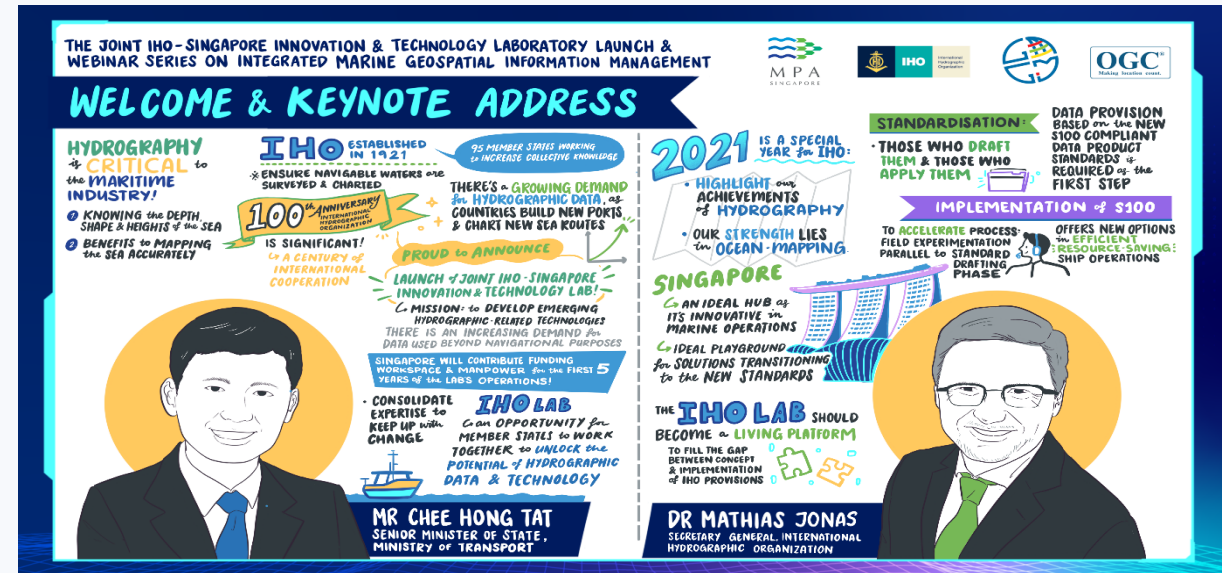 THE JOINT IHO-SINGAPORE INNOVATION & TECHNOLOGY LABORATORY LAUNCH &
WEBINAR SERIES ON INTEGRATED MARINE GEOSPATIAL INFORMATION MANAGEMENT
MPA
SINGAPORE
IHO
International
Hydrographic
Organization
OGC®
Making location count.
WELCOME & KEYNOTE ADDRESS
HYDROGRAPHY
is CRITICAL to
the MARITIME
INDUSTRY!
1 KNOWING the DEPTH,
SHAPE & HEIGHTS of the SEA
2 BENEFITS to MAPPING
the SEA ACCURATELY
IHO ESTABLISHED
IN 1921
* ENSURE NAVIGABLE WATERS are
SURVEYED & CHARTED
100th ANNIVERSARY
INTERNATIONAL
HYDROGRAPHIC
ORGANIZATION
IS SIGNIFICANT!
A CENTURY OF
INTERNATIONAL
COOPERATION
95 MEMBER STATES WORKING
to INCREASE COLLECTIVE KNOWLEDGE
THERE'S a GROWING DEMAND
for HYDROGRAPHIC DATA, as
COUNTRIES BUILD NEW PORTS
& CHART NEW SEA ROUTES
PROUD to ANNOUNCE
LAUNCH of JOINT IHO-SINGAPORE
INNOVATION & TECHNOLOGY LAB!
MISSION: to DEVELOP EMERGING
HYDROGRAPHIC-RELATED TECHNOLOGIES
THERE IS AN INCREASING DEMAND for
DATA USED BEYOND NAVIGATIONAL PURPOSES
SINGAPORE WILL CONTRIBUTE FUNDING
WORKSPACE & MANPOWER for the FIRST 5
YEARS of the LAB'S OPERATIONS!
• CONSOLIDATE
EXPERTISE to
KEEP UP with
CHANGE
IHO LAB
an OPPORTUNITY for
MEMBER STATES to WORK
TOGETHER to UNLOCK the
POTENTIAL of HYDROGRAPHIC
DATA & TECHNOLOGY
MR CHEE HONG TAT
SENIOR MINISTER OF STATE,
MINISTRY OF TRANSPORT
2021 IS A SPECIAL
YEAR for IHO:
• HIGHLIGHT our
ACHIEVEMENTS
of HYDROGRAPHY
• OUR STRENGTH LIES
in OCEAN-MAPPING
SINGAPORE
AN IDEAL HUB as
IT'S INNOVATIVE in
MARINE OPERATIONS
IDEAL PLAYGROUND
for SOLUTIONS TRANSITIONING
to the NEW STANDARDS
THE IHO LAB SHOULD
BECOME a LIVING PLATFORM
TO FILL THE GAP
BETWEEN CONCEPT
& IMPLEMENTATION
of IHO PROVISIONS
STANDARDISATION:
• THOSE WHO DRAFT
THEM & THOSE WHO
APPLY THEM
DATA PROVISION
BASED on the NEW
S100 COMPLIANT
DATA PRODUCT
STANDARDS is
REQUIRED as the
FIRST STEP
IMPLEMENTATION of S100
TO ACCELERATE PROCESS:
FIELD EXPERIMENTATION
PARALLEL to STANDARD
DRAFTING
PHASE
OFFERS NEW OPTIONS
in EFFICIENT
RESOURCE-SAVING
SHIP OPERATIONS
DR MATHIAS JONAS
SECRETARY GENERAL, INTERNATIONAL
HYDROGRAPHIC ORGANIZATION